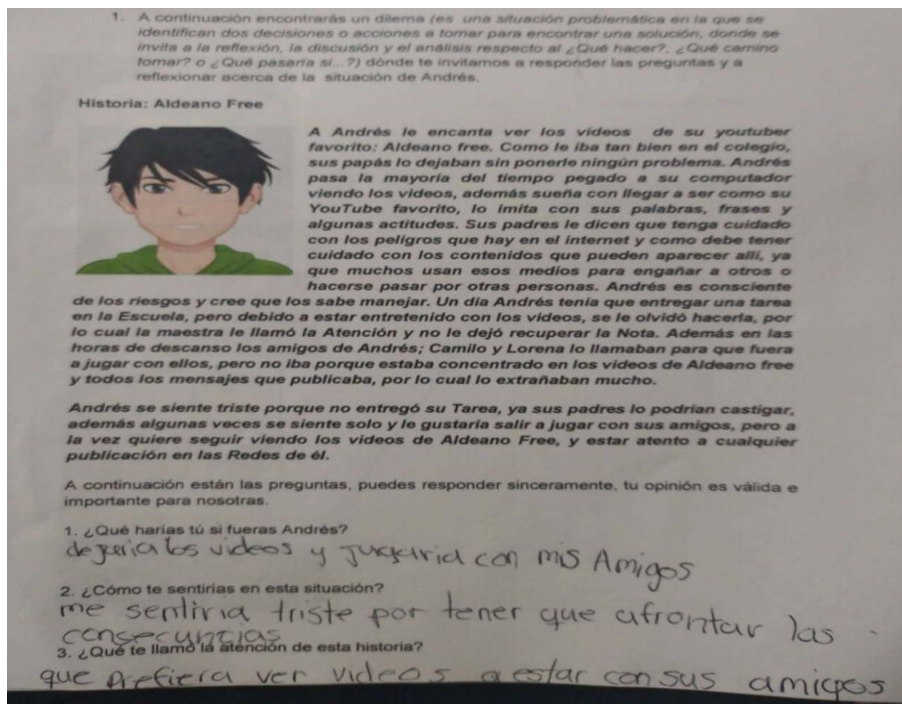 1. A continuación encontrarás un dilema (es una situación problemática en la que se
identifican dos decisiones o acciones a tomar para encontrar una solución, donde se
invita a la reflexión, la discusión y el análisis respecto al ¿Qué hacer?, ¿Qué camino
tomar? o ¿Qué pasaría si...?) dónde te invitamos a responder las preguntas y a
reflexionar acerca de la situación de Andrés.
Historia: Aldeano Free
A Andrés le encanta ver los videos de su youtuber
favorito: Aldeano free. Como le iba tan bien en el colegio,
sus papás lo dejaban sin ponerle ningún problema. Andrés
pasa la mayoría del tiempo pegado a su computador
viendo los videos, además sueña con llegar a ser como su
YouTube favorito, lo imita con sus palabras, frases y
algunas actitudes. Sus padres le dicen que tenga cuidado
con los peligros que hay en el internet y como debe tener
cuidado con los contenidos que pueden aparecer allí, ya
que muchos usan esos medios para engañar a otros o
hacerse pasar por otras personas. Andrés es consciente
de los riesgos y cree que los sabe manejar. Un día Andrés tenía que entregar una tarea
en la Escuela, pero debido a estar entretenido con los videos, se le olvidó hacerla, por
lo cual la maestra le llamó la Atención y no le dejó recuperar la Nota. Además en las
horas de descanso los amigos de Andrés; Camilo y Lorena lo llamaban para que fuera
a jugar con ellos, pero no iba porque estaba concentrado en los videos de Aldeano free
y todos los mensajes que publicaba, por lo cual lo extrañaban mucho.
Andrés se siente triste porque no entregó su Tarea, ya sus padres lo podrían castigar,
además algunas veces se siente solo y le gustaría salir a jugar con sus amigos, pero a
la vez quiere seguir viendo los videos de Aldeano Free, y estar atento a cualquier
publicación en las Redes de él.
A continuación están las preguntas, puedes responder sinceramente, tu opinión es válida e
importante para nosotras.
1. ¿Qué harías tú si fueras Andrés?
dejaria los videos y jugaria con mis Amigos
2. ¿Cómo te sentirías en esta situación?
me sentiria triste por tener que afrontar las
consecuncias
3. ¿Qué te llamó la atención de esta historia?
que prefiera ver videos a estar con sus amigos